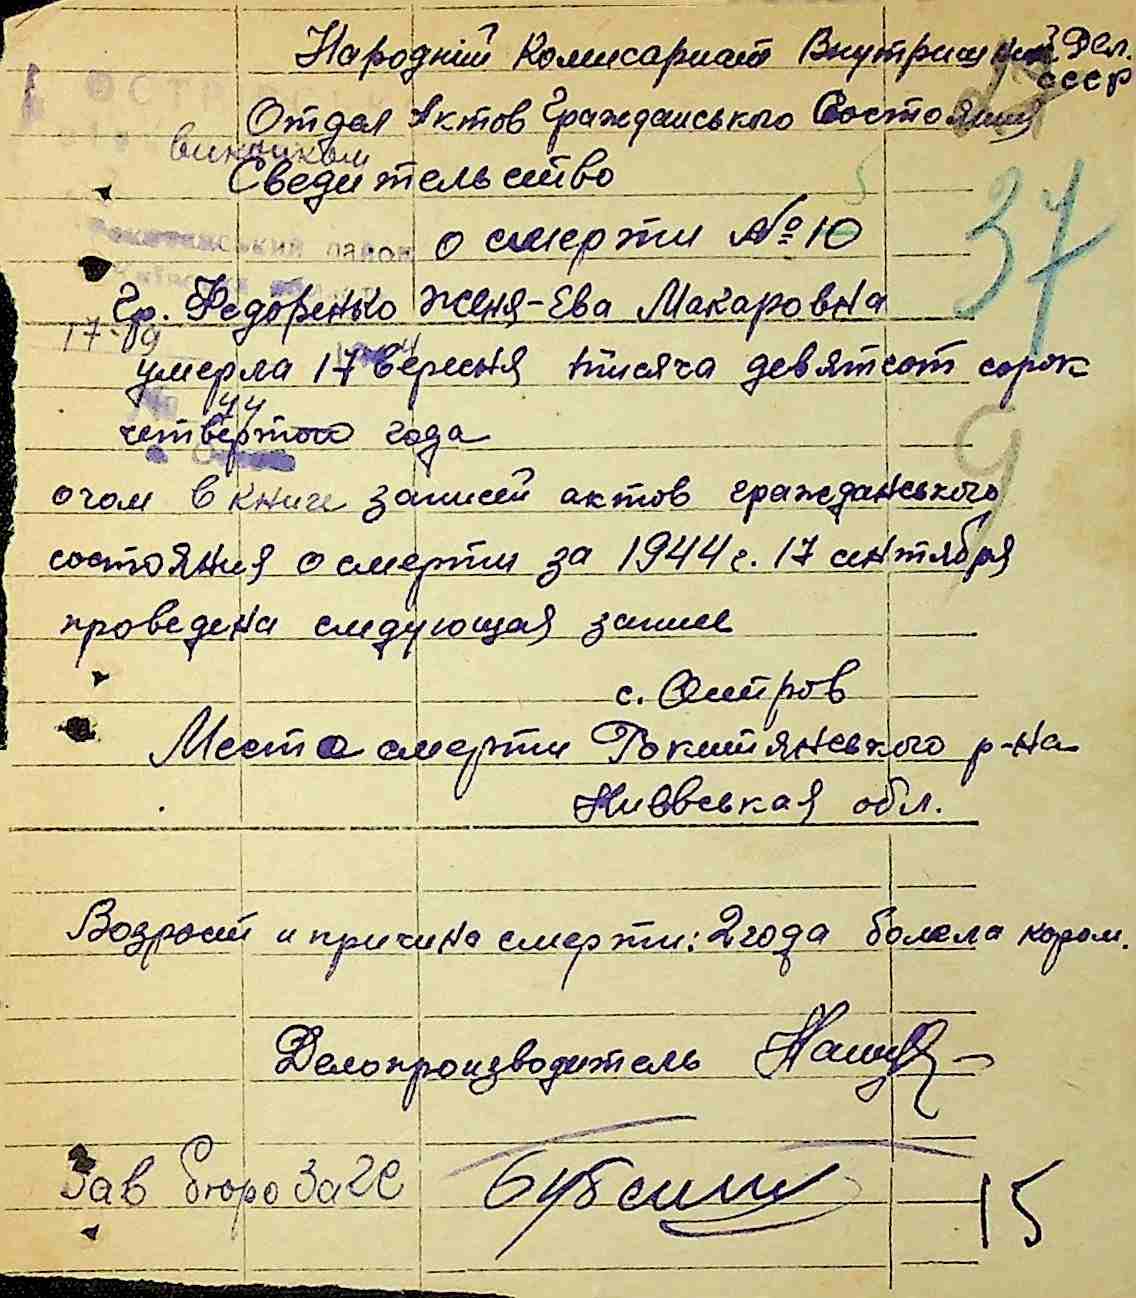 Народній Комисариат Внутришних Дел.
СССР
Отдел Актов Гражданського Состояния
виконком
Сведительство
о смерти № 10
37
Гр. Федоренко Женя-Ева Макаровна
17-09
умерла 17 вересня тисяча девятсот сорок
44
четвертого года
9
о чом в книге записей актов гражданського
состояния о смерти за 1944 г. 17 сентября
проведена следующая запис
с. Остров
Место смерти Рокитянського р-на
Киевськая обл.
Возраст и причина смерти: 2 года болела кором.
Делопроизводитель
Зав бюро Загс
15